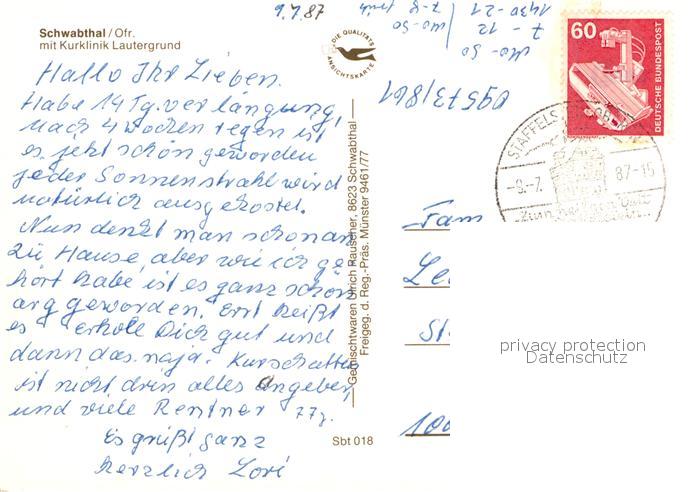 9.7.87
Schwabthal/Ofr.
mit Kurklinik Lautergrund
DIE QUALITÄTS
ANSICHTSKARTE
Hallo Ihr Lieben.
Habe 14 Tg. verlängung,
nach 4 wochen regen ist
es jetzt schön geworden
jeder Sonnenstrahl wird
natürlich ausgekostet.
Nun denkt man schon an
zu Hause, aber wie ich ge
hört habe ist es ganz schön
arg geworden. Erst heißt
es erhole Dich gut und
dann das. naja. Kurschatten
ist nicht drin alles Angeber,
und viele Rentner 77j.
Es grüßt ganz
herzlich Lori
Gemischtwaren Ulrich Rauscher, 8623 Schwabthal
Freigeg. d. Reg.-Präs. Münster 9461/77
Sbt 018
Mo-So
7 - 12
1430 - 21
Mo-So
7-8
09573/861
60
DEUTSCHE BUNDESPOST
STAFFELS
-9.-7. 87-15
Fam
Le
St
100
privacy protection
Datenschutz